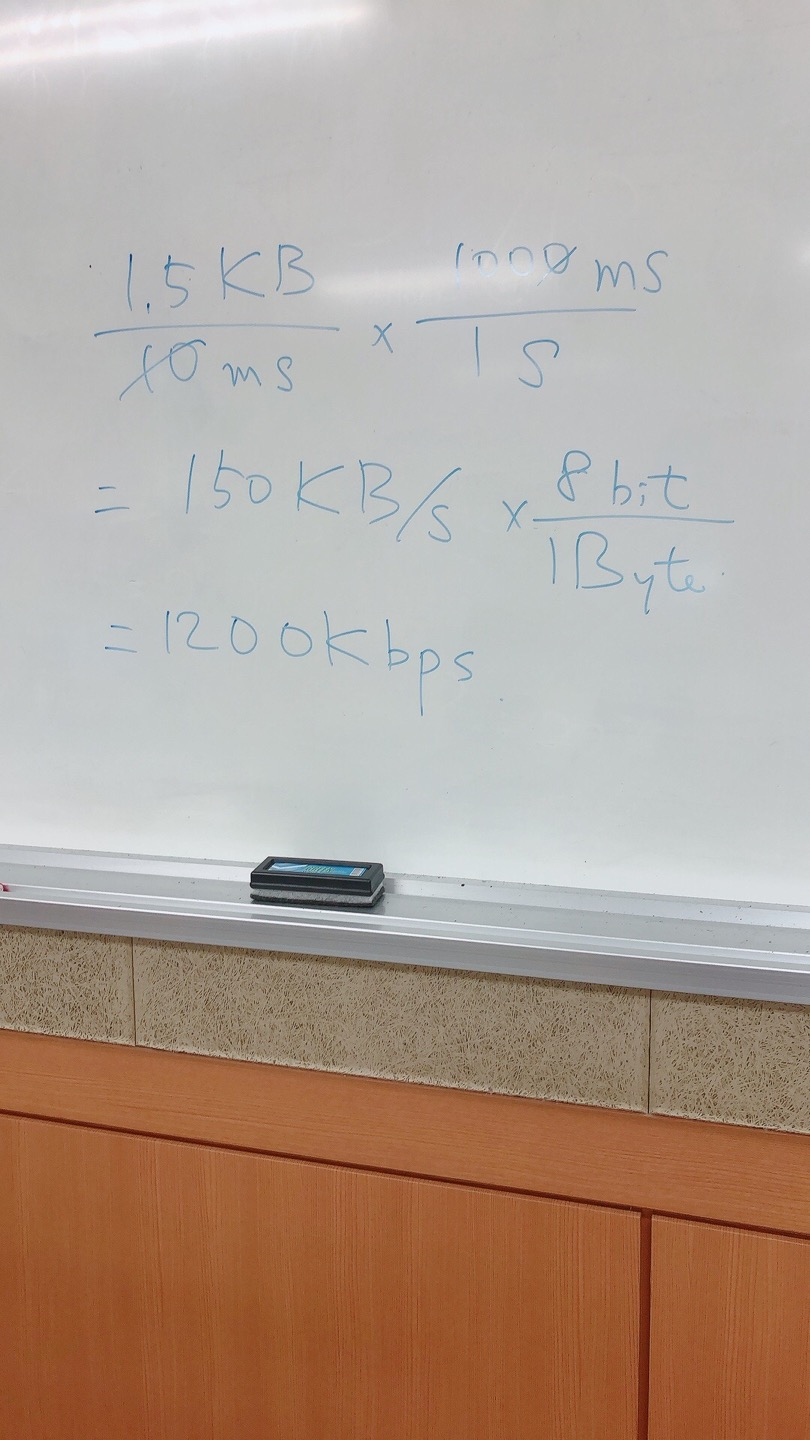 1.5 KB / 10 ms × 1000 ms / 1 S
= 150 KB/s × 8 bit / 1 Byte
= 1200 Kbps